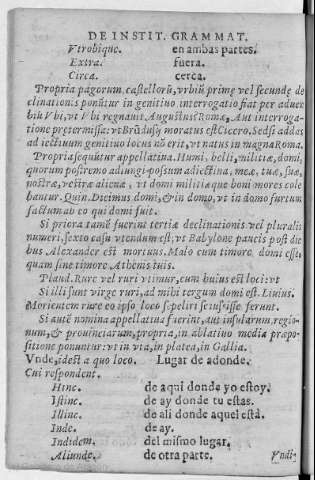 DE INSTIT. GRAMMAT.
Vtrobique. en ambas partes.
Extra. fuera.
Circa. cerca.
Propria pagorum castellorũ, vrbiũ primę vel secundę de
clinationis ponũtur in genitiuo interrogatio fiat per aduer
biũ Vbi, vt Vbi regnauit Augustus? Romæ, Aut interroga-
tione pretermissa: vt Brũdusij moratus est Cicero. Sed si addas
adiectiuum genitiuo locus nõ erit, vt natus in magna Roma.
Propria sequũtur appellatiua. Humi, belli, militiæ, domi,
quorum postremo adiungi possum adiectiua, meæ, tuæ, suæ,
nostræ, vestræ alienæ, vt domi militiæque boni mores cole
bantur. Quin. Dicimus domi, & in domo, vt in domo furtum
factum ab eo qui domi fuit.
Si priora tamẽ fuerint tertiæ declinationis vel pluralis
numeri, sexto casu vtendum est, vt Babylone paucis post die
bus Alexander est mortuus. Malo cum timore domi esse,
quam sine timore Athenis tuis.
Rure vel ruri vtimur, cum huius est loci: vt
Si illi sunt virge ruri, ad mihi tergum domi est. Liuius.
Morientem rure eo ipso loco sepeliri se iussisse ferunt.
Si autẽ nomina appellatiua fuerint, aut insularum, regio-
num, & prouinciarum, propria, in ablatiuo media præpo-
sitione ponuntur: vt in via, in platea, in Gallia.
Vnde, idest a quo loco. Lugar de adonde.
Cui respondent.
Hinc. de aqui donde yo estoy.
Istinc. de ay donde tu estas.
Illinc. de ali donde aquel està.
Inde. de ay.
Indidem. del mismo lugar.
Aliunde. de otra parte. Vndi-